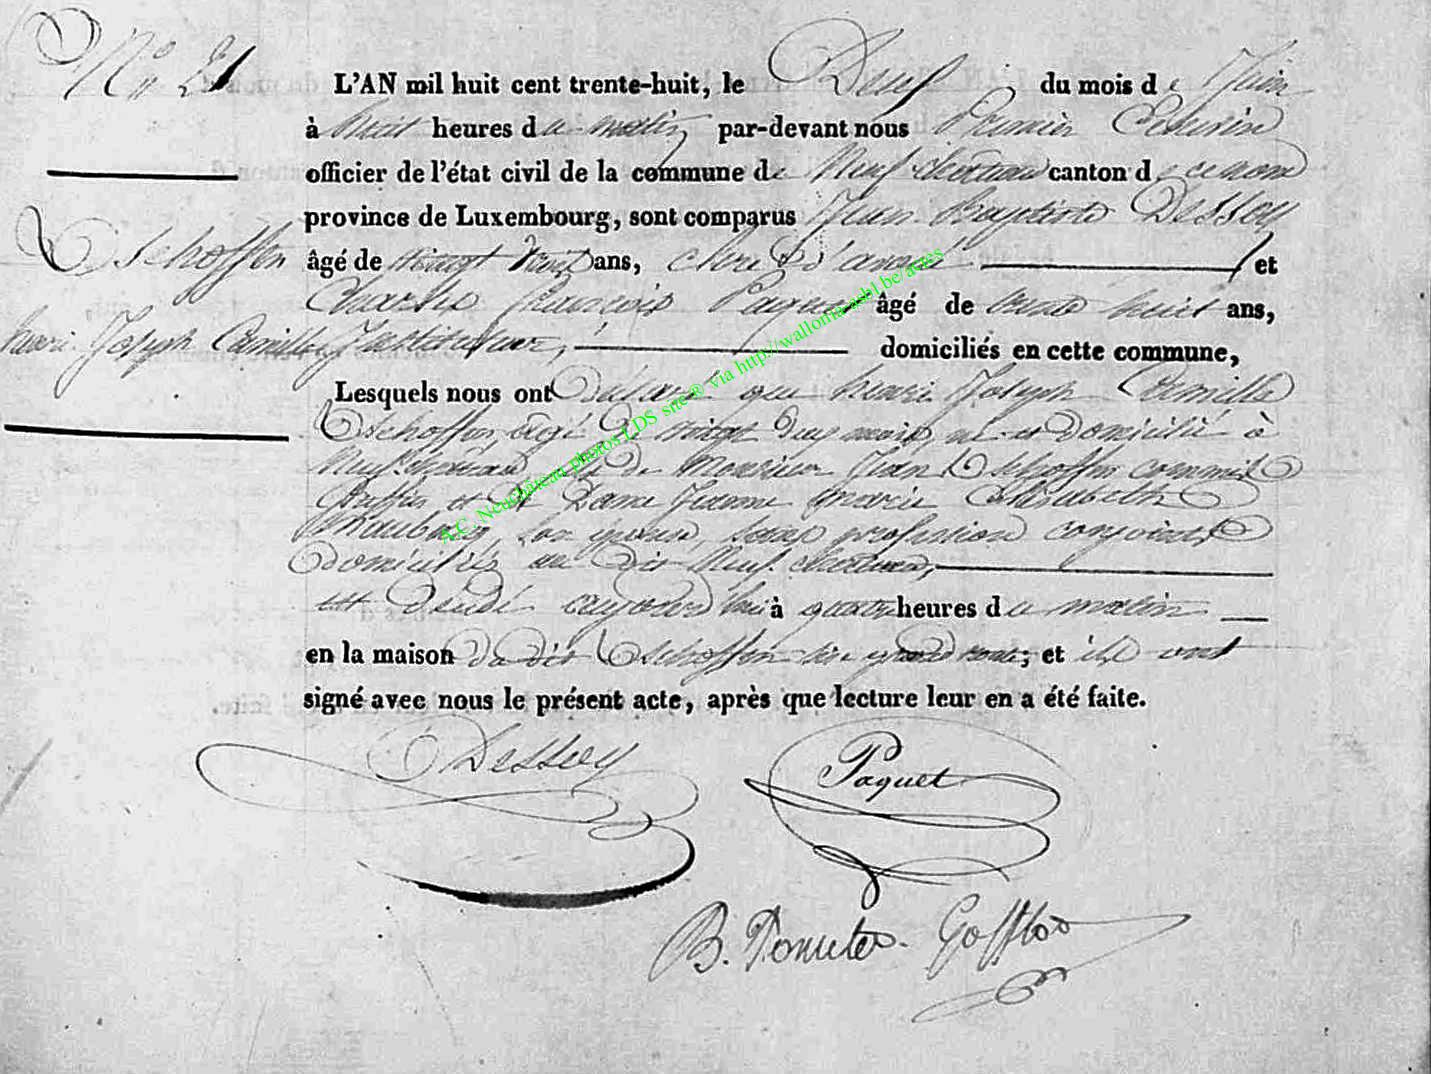 N° 21
L'AN mil huit cent trente-huit, le Neuf du mois de Juin
à huit heures du matin par-devant nous Premier Echevin
officier de l'état civil de la commune de Neufchateau canton de ce nom
province de Luxembourg, sont comparus Jean Baptiste Dessoy
Tschoffen
âgé de vingt huit ans, Clerc d'avoué et
Charles François Paquet âgé de trente huit ans,
henri Joseph Camille
Instituteur, domiciliés en cette commune,
Lesquels nous ont déclaré que henri Joseph Camille
Tschoffen, âgé de vingt deux mois, né et domicilié à
Neufchateau, fils de Monsieur Jean Tschoffen commis
Greffier et de Dame Jeanne Marie Elisabeth
son épouse, sans profession conjoints
domiciliés au dit Neufchateau,
est décédé aujourd'hui à quatre heures du matin
en la maison du dit Tschoffen sise grande route; et ils ont
signé avec nous le présent acte, après que lecture leur en a été faite.
Dessoy
Paquet
B. Goffloo
A.C. Neufchâteau photos LDS site® via http://wallonia-asbl.be/actes